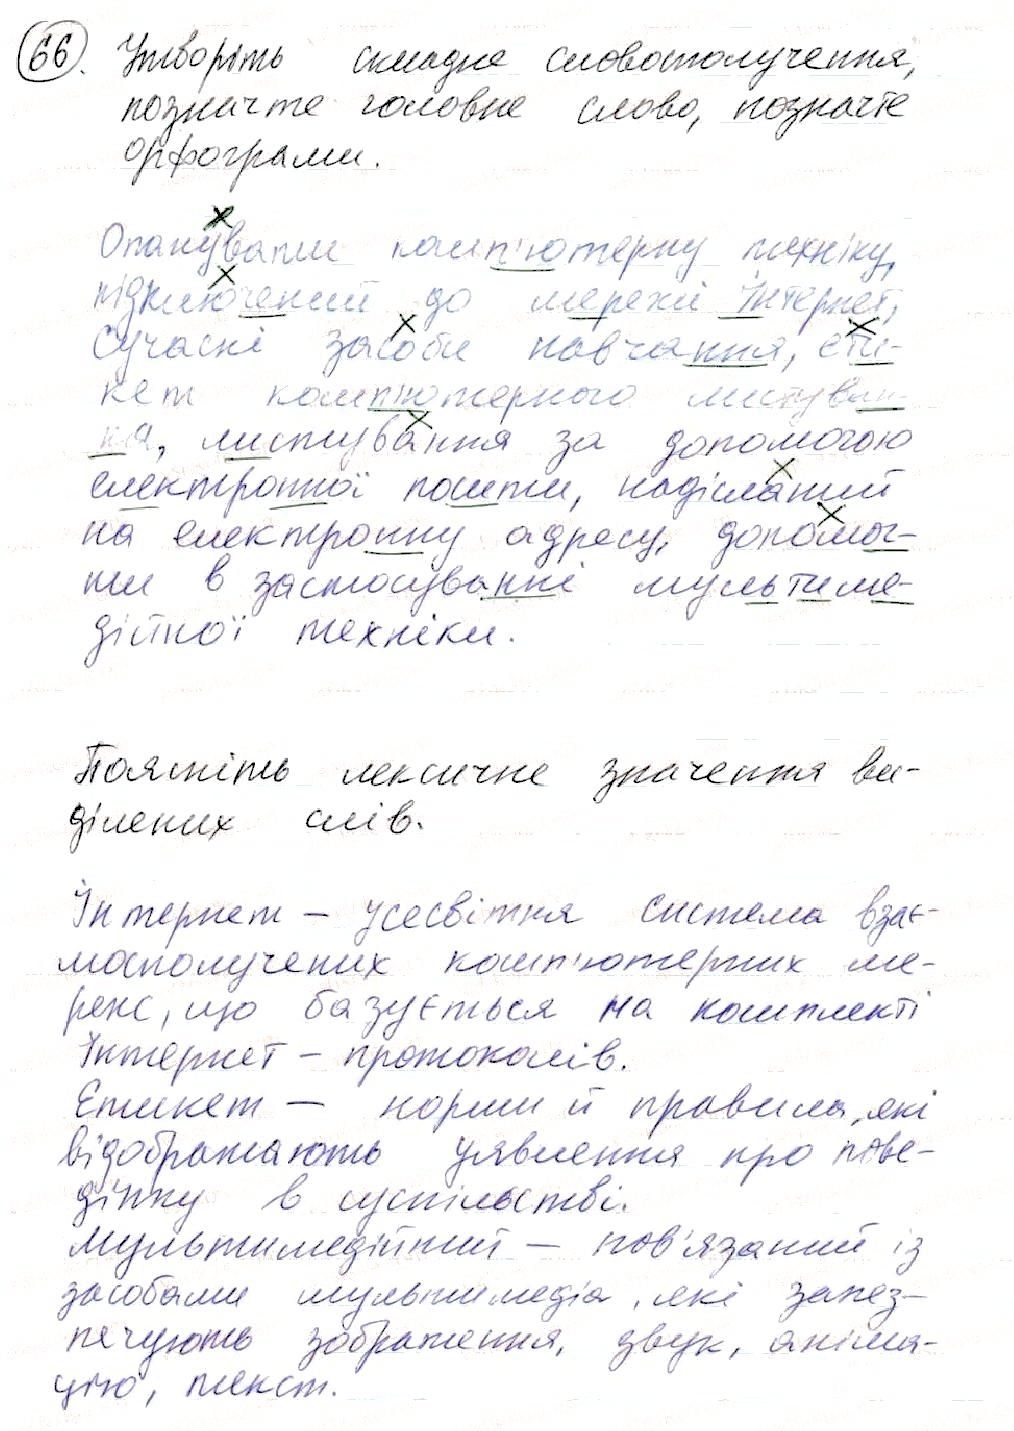 66. Утворіть складне словосполучення,
позначте головне слово, позначте
орфограми.
Опанувати комп'ютерну техніку,
підключений до мережі Інтернет,
сучасні засоби навчання, ети-
кет комп'ютерного листуван-
ня, листування за допомогою
електронної пошти, надісланий
на електронну адресу, допомог-
ти в застосуванні мультиме-
дійної техніки.
Поясніть лексичне значення ви-
ділених слів.
Інтернет – усесвітня система взає-
мосполучених комп'ютерних ме-
реж, що базується на комплекті
Інтернет – протоколів.
Етикет – норми й правила, які
відображають уявлення про пове-
дінку в суспільстві.
Мультимедійний – пов'язаний із
засобами мультимедіа, які запез-
печують зображення, звук, аніма-
цію, текст.